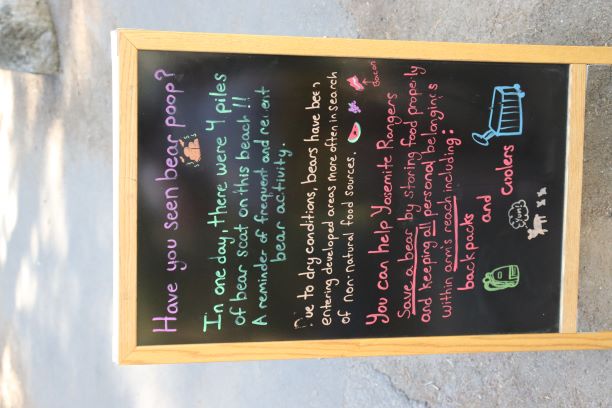 Have you seen bear poop?
In one day, there were 4 piles
of bear scat on this beach!!
A reminder of frequent and recent
bear activity.
Due to dry conditions, bears have been
entering developed areas more often in search
of non-natural food sources.
Bacon
You can help Yosemite Rangers
Save a bear by storing food properly
and keeping all personal belongings
within arms reach including:
backpacks and coolers